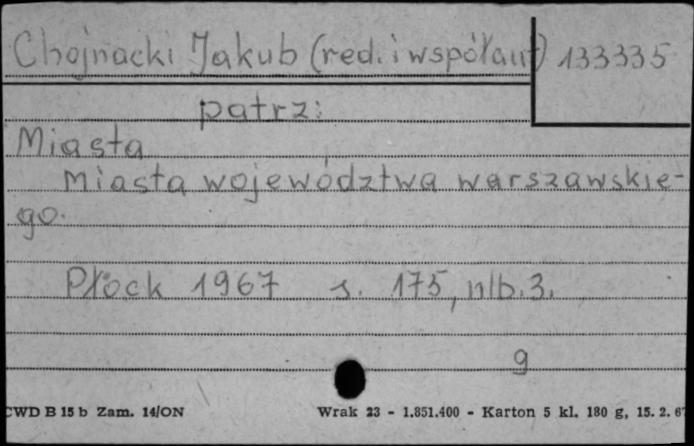 Chojnacki Jakub (red. i współaut) 133335
patrz:
Miasta
Miasta województwa warszawskie-
go.
Płock 1967 s. 175, nlb. 3.
g
CWD B 15 b Zam. 14/ON Wrak 23 - 1.851.400 - Karton 5 kl. 180 g, 15. 2. 67